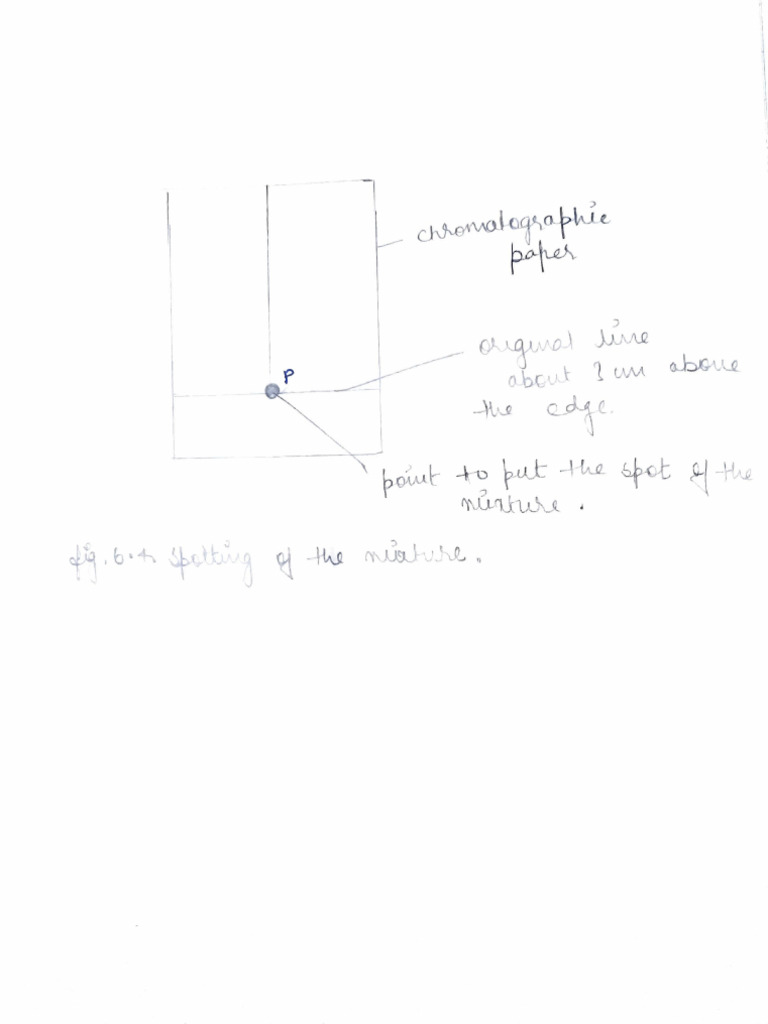 chromatographic
paper
original line
about 3 cm above
the edge.
P
point to put the spot of the
mixture.
fig. 6.4 spotting of the mixture.